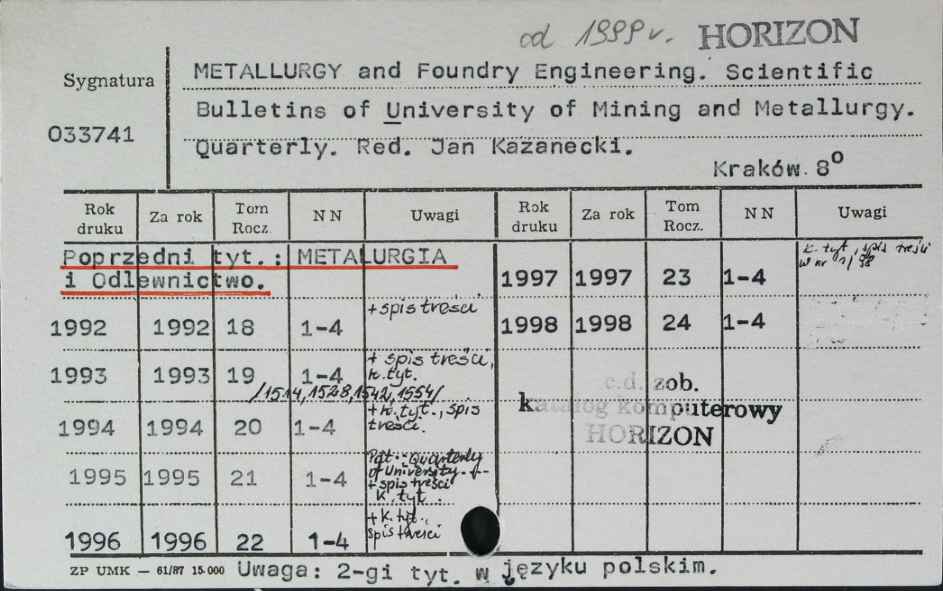 od 1999 r. HORIZON
Sygnatura
033741
METALLURGY and Foundry Engineering. Scientific
Bulletins of University of Mining and Metallurgy.
Quarterly. Red. Jan Kazanecki.
Kraków 8°
Rok druku Za rok Tom Rocz NN Uwagi Rok druku Za rok Tom Rocz. NN Uwagi
Poprzedni tyt.: METALURGIA
i Odlewnictwo.
1992 1992 18 1-4 + spis treści
1993 1993 19 1-4 + spis treści, k. tyt.
/1514, 1528, 1542, 1554/
1994 1994 20 1-4 + k. tyt., spis treści.
1995 1995 21 1-4 Quarterly of University. + spis treści k. tyt.
1996 1996 22 1-4 + k. tyt., spis treści
1997 1997 23 1-4 k. tyt, spis treści w nr 1/98
1998 1998 24 1-4
c.d. zob.
katalog komputerowy
HORIZON
ZP UMK — 61/87 15.000 Uwaga: 2-gi tyt. w języku polskim.